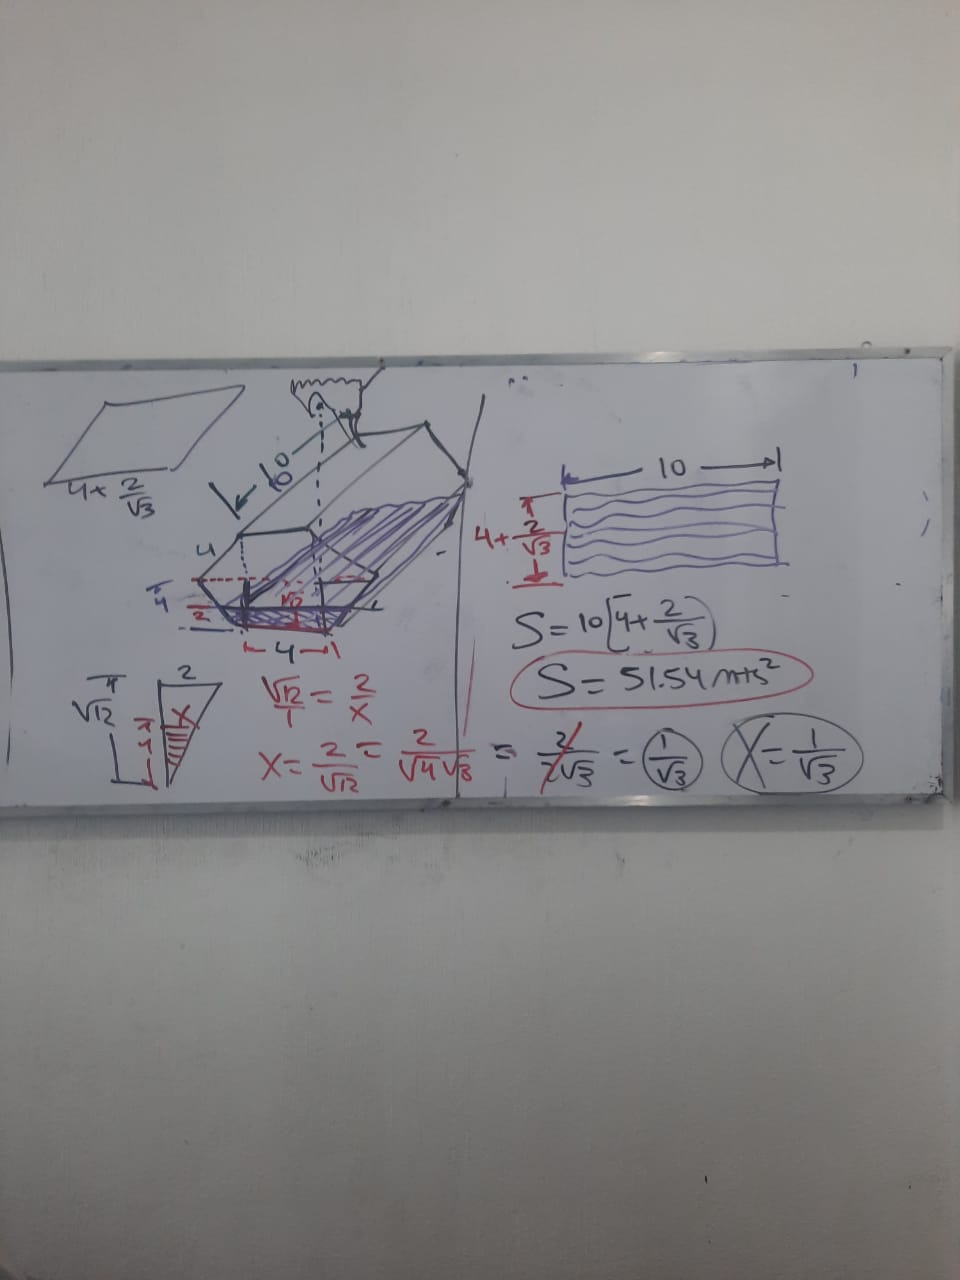 4+ 2/√3
10
10
4
4
2
√12
4
2
√12
X
1
√12/1 = 2/X
X = 2/√12 = 2/√4√3 = 2/2√3 = 1/√3
X = 1/√3
10
4+ 2/√3
S = 10[4+ 2/√3]
S = 51.54 mts²